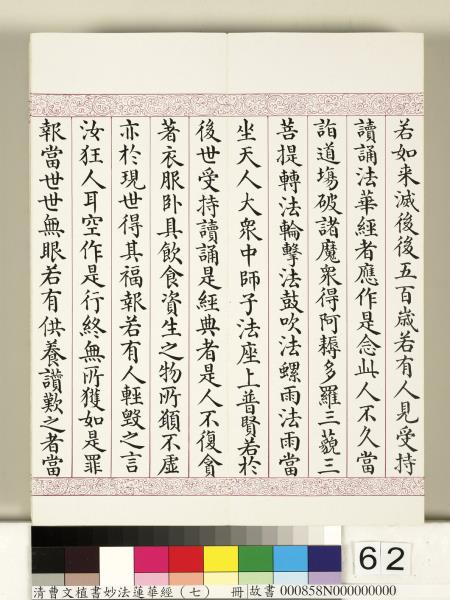 若如来滅後後五百歳若有人見受持
讀誦法華經者應作是念此人不久當
詣道塲破諸魔衆得阿耨多羅三藐三
菩提轉法輪擊法鼓吹法螺雨法雨當
坐天人大衆中師子法座上普賢若於
後世受持讀誦是經典者是人不復貪
著衣服卧具飲食資生之物所願不虛
亦於現世得其福報若有人輕毀之言
汝狂人耳空作是行終無所獲如是罪
報當世世無眼若有供養讃歎之者當
62
清曹文植書妙法蓮華經（七） 冊 故書 000858N000000000